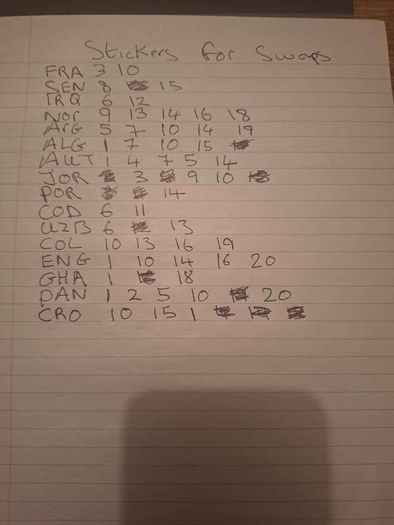 Stickers for Swaps
FRA 3 10
SEN 8 15
IRQ 6 12
Nor 9 13 14 16 18
Arg 5 7 10 14 19
ALG 1 7 10 15
AUT 1 4 7 5 14
JOR 3 9 10
POR 14
COD 6 11
UZB 6 13
COL 10 13 16 19
ENG 1 10 14 16 20
GHA 1 18
PAN 1 2 5 10 20
CRO 10 15 1